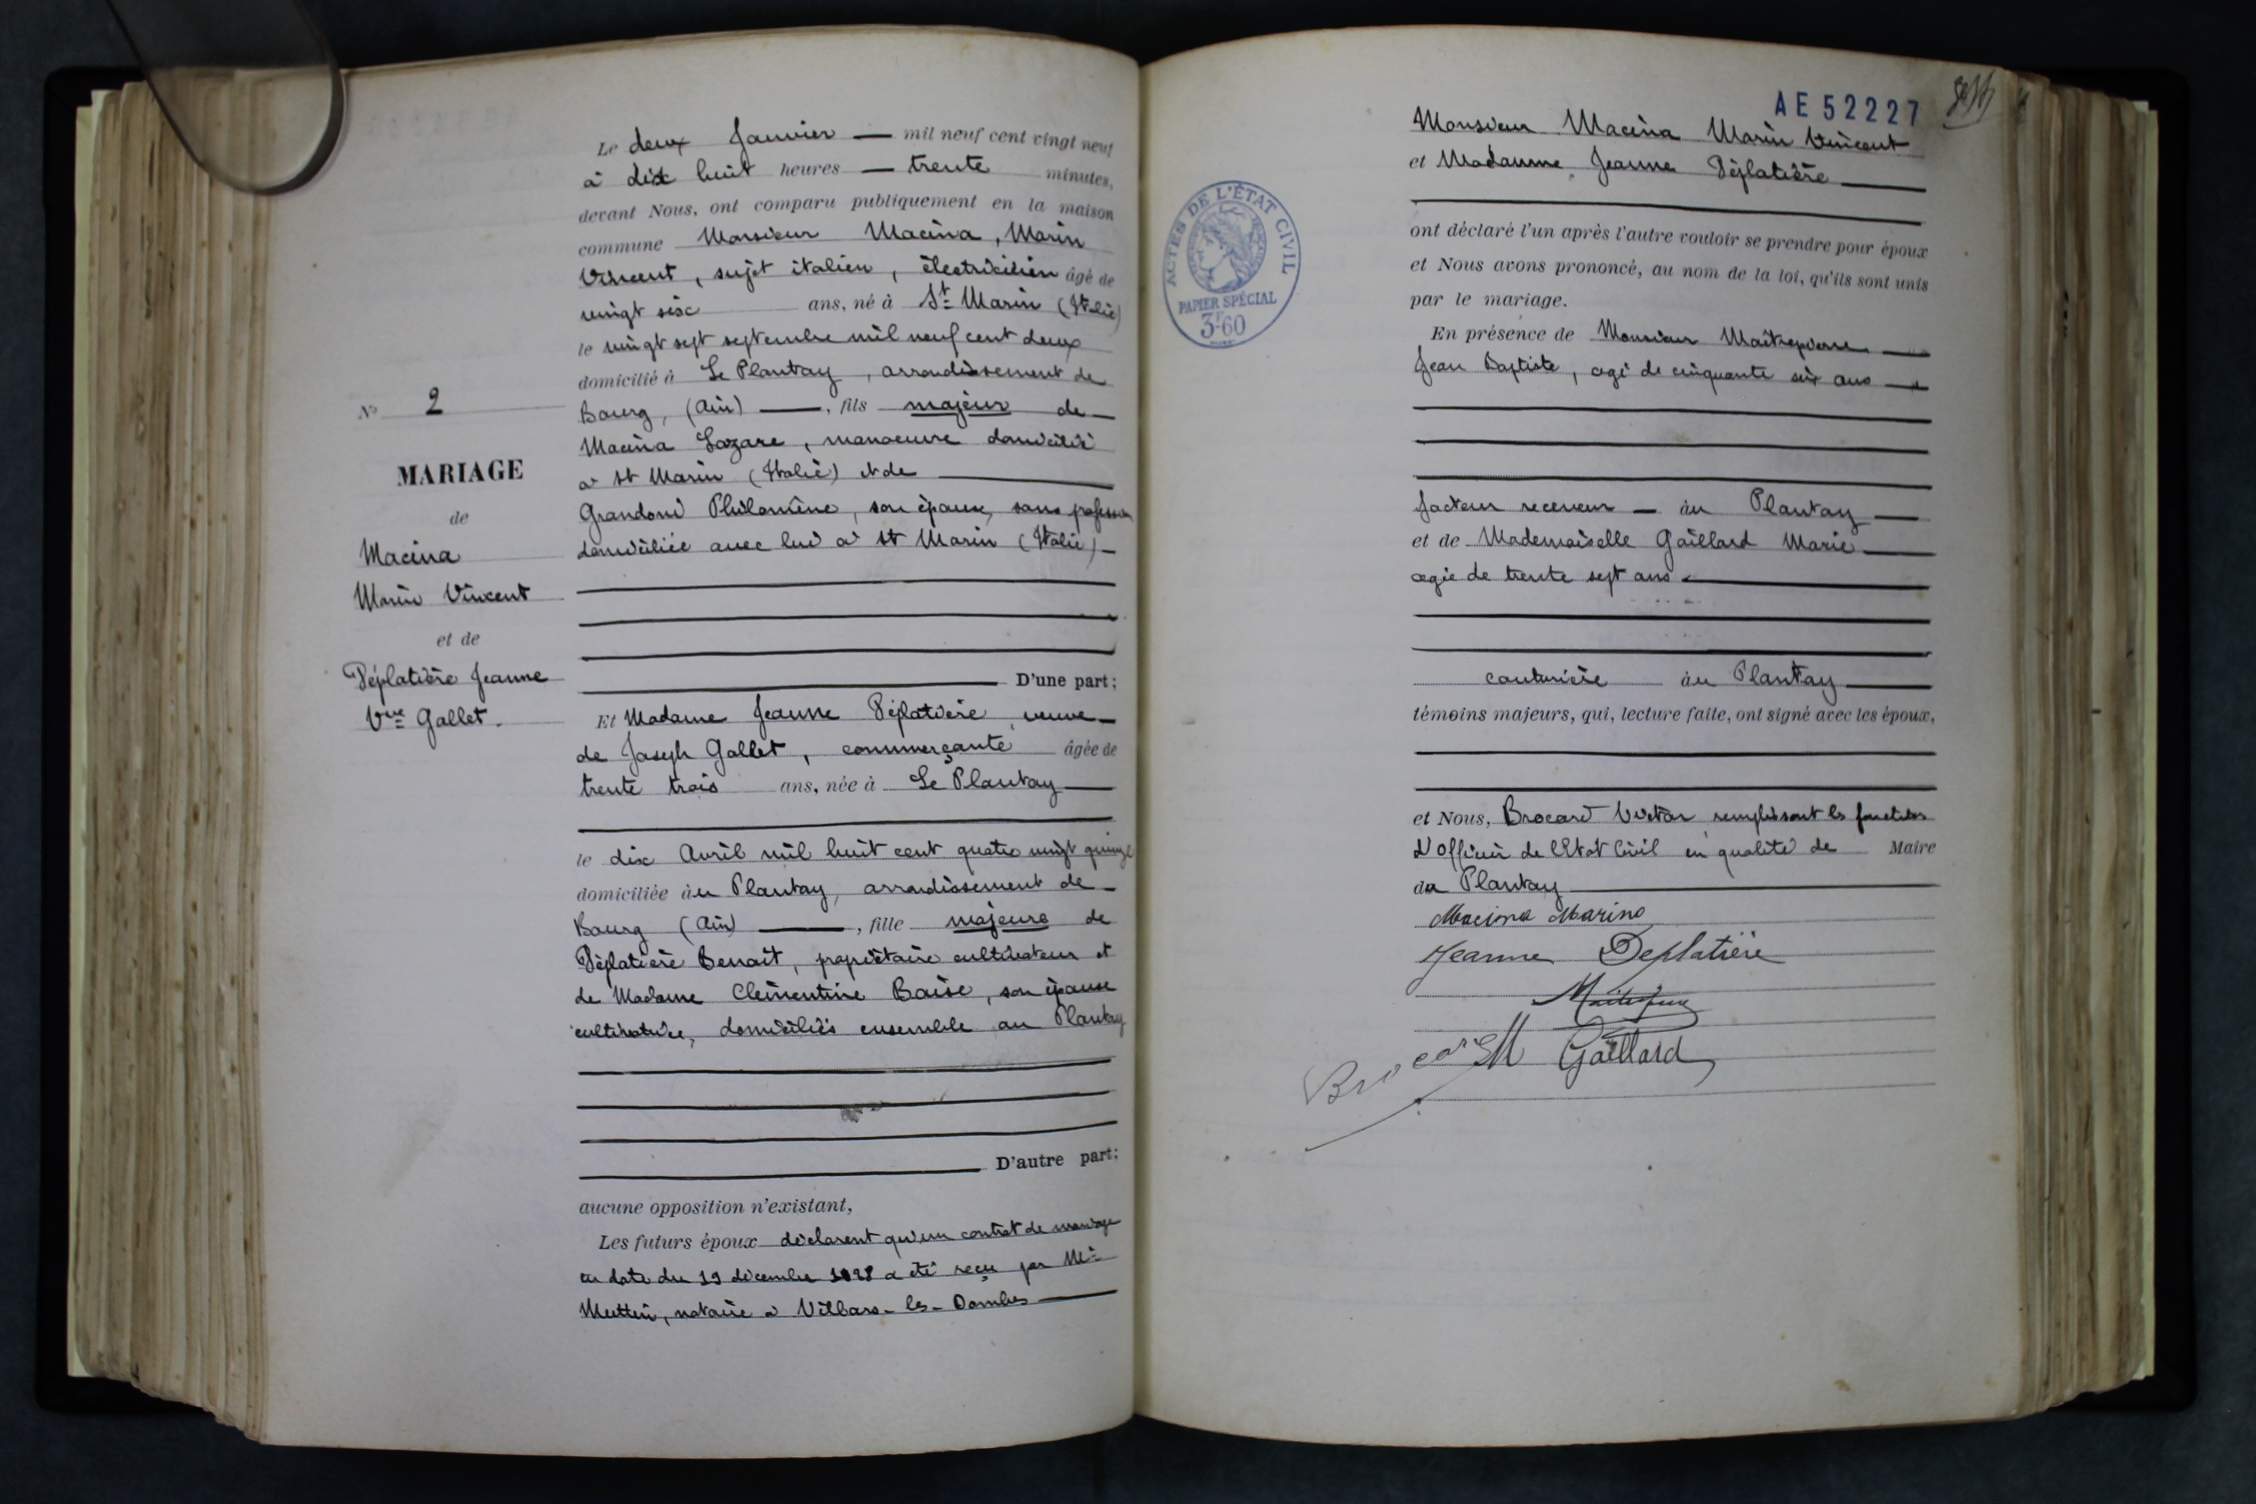 Le deux Janvier — mil neuf cent vingt neuf
à dix huit heures — trente minutes,
devant Nous, ont comparu publiquement en la maison
commune Monsieur Macina, Marin
Vincent, sujet italien, électricien âgé de
vingt six ans, né à St Marin (Italie)
le vingt sept septembre mil neuf cent deux
domicilié à Le Plantay, arrondissement de
Bourg, (Ain) —, fils majeur de —
Macina Lazare, manoeuvre domicilié
à St Marin (Italie) et de
Grandoni Philomène, son épouse, sans profession
domiciliée avec lui à St Marin (Italie) —
D'une part;
Et Madame Jeanne Déplatière veuve —
de Joseph Gallet, commerçante âgée de
trente trois ans, née à Le Plantay —
le dix Avril mil huit cent quatre vingt quinze
domiciliée au Plantay, arrondissement de —
Bourg (Ain) —, fille majeure de
Déplatière Benoit, propriétaire cultivateur et
de Madame Clémentine Baise, son épouse
cultivatrice, domiciliés ensemble au Plantay
D'autre part:
aucune opposition n'existant,
Les futurs époux déclarent qu'un contrat de mariage
en date du 19 décembre 1928 a été reçu par Me
notaire à Villars-les-Dombes —
No 2
MARIAGE
de
Macina
Marin Vincent
et de
Déplatière Jeanne
Vve Gallet.
AE 52227
ACTES DE L'ÉTAT CIVIL
PAPIER SPÉCIAL
3F60
Monsieur Macina Marin Vincent
et Madame Jeanne Déplatière —
ont déclaré l'un après l'autre vouloir se prendre pour époux
et Nous avons prononcé, au nom de la loi, qu'ils sont unis
par le mariage.
En présence de Monsieur Maîtrepierre —
Jean Baptiste, agé de cinquante six ans —
facteur receveur — au Plantay —
et de Mademoiselle Gaillard Marie —
agée de trente sept ans —
couturière au Plantay —
témoins majeurs, qui, lecture faite, ont signé avec les époux,
et Nous, Brocard Victor remplissant les fonctions
d'officier de l'Etat Civil en qualité de Maire
du Plantay —
Macina Marino
Jeanne Deplatière
M Gaillard
Brocard